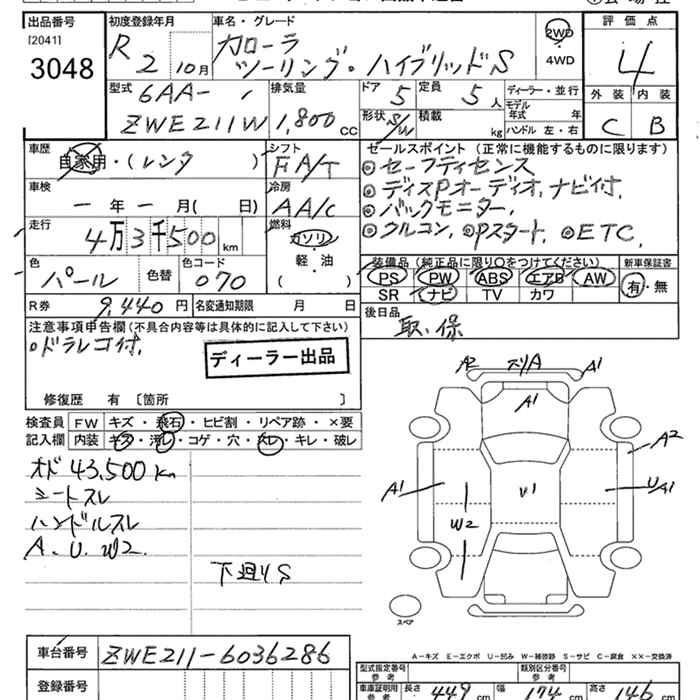 出品番号 初度登録年月 車名・グレード 評価点
[2041]
3048
R 2 10月
カローラ
ツーリング・ハイブリッドS
2WD
4WD
4
外装 内装
C B
型式 排気量 ドア 定員 ディーラー・並行
6AA-
ZWE211W 1,800cc
5 5人
形状 S/W 積載 kg
モデル年式 年式
ハンドル 左・右
車歴 シフト セールスポイント(正常に機能するものに限ります)
自家用・(レンタ) FA/T
◎セーフティセンス
◎ディスPオーディオ,ナビ付,
◎バックモニター,
◎クルコン, ◎Pスタート, ◎ETC,
車検 冷房
一年一月( 日) AA/C
走行 燃料
4万3千500km
ガソリン
軽・油
色 色替 色コード
パール 070
装備品(純正品に限り○をつけてください) 新車保証書
PS PW ABS エアB AW
SR ナビ TV カワ
有・無
R券 9,440円 名変通知期限 月 日
後日品
取, 保
注意事項申告欄(不具合内容等は具体的に記入して下さい)
◦ドラレコ付,
ディーラー出品
修復歴 有〔箇所 〕
検査員 FW キズ・飛石・ヒビ割・リペア跡・×要
記入欄 内装 キズ・汚レ・コゲ・穴・スレ・キレ・破レ
オド 43,500km
シートスレ
ハンドルスレ
A. U. W2.
下廻りS
A2 スリA A1
A1
A2
A1 W2 U1 U/A1
スペア
車台番号 ZWE211-6036286
登録番号
A-キズ E-エクボ U-凹み W-補修跡 S-サビ C-腐食 ××-交換済
型式指定番号 参考 類別区分番号 参考
車庫証明用 参考 長さ 449cm 幅 174cm 高さ 146cm